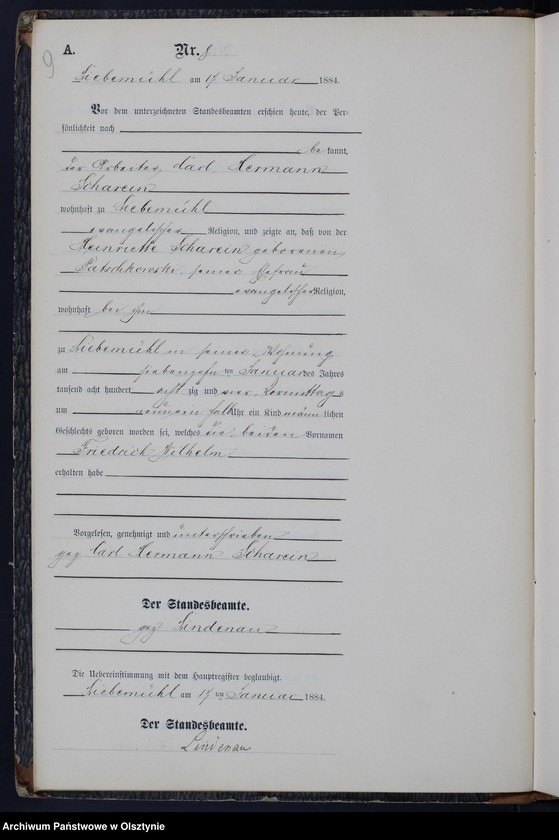 9
A.
Nr. 8
Liebemühl am 17 Januar 1884.
Vor dem unterzeichneten Standesbeamten erschien heute, der Per-
sönlichkeit nach
be kannt,
der Arbeiter Carl Hermann
Scharein
wohnhaft zu Liebemühl
evangelischer Religion, und zeigte an, daß von der
Henriette Scharein geborenen
Patschkowski seiner Ehefrau
evangelischer Religion,
wohnhaft bei ihm
zu Liebemühl in seiner Wohnung
am siebenzehnten Januar des Jahres
tausend acht hundert acht zig und vier Vormittags
um neunein halb Uhr ein Kind männ lichen
Geschlechts geboren worden sei, welches die beiden Vornamen
Friedrich Wilhelm
erhalten habe
Vorgelesen, genehmigt und unterschrieben
gez Carl Hermann Scharein
Der Standesbeamte.
gez Lindenau
Die Uebereinstimmung mit dem Hauptregister beglaubigt.
Liebemühl am 17 ten Januar 1884.
Der Standesbeamte.
Lindenau
Archiwum Państwowe w Olsztynie